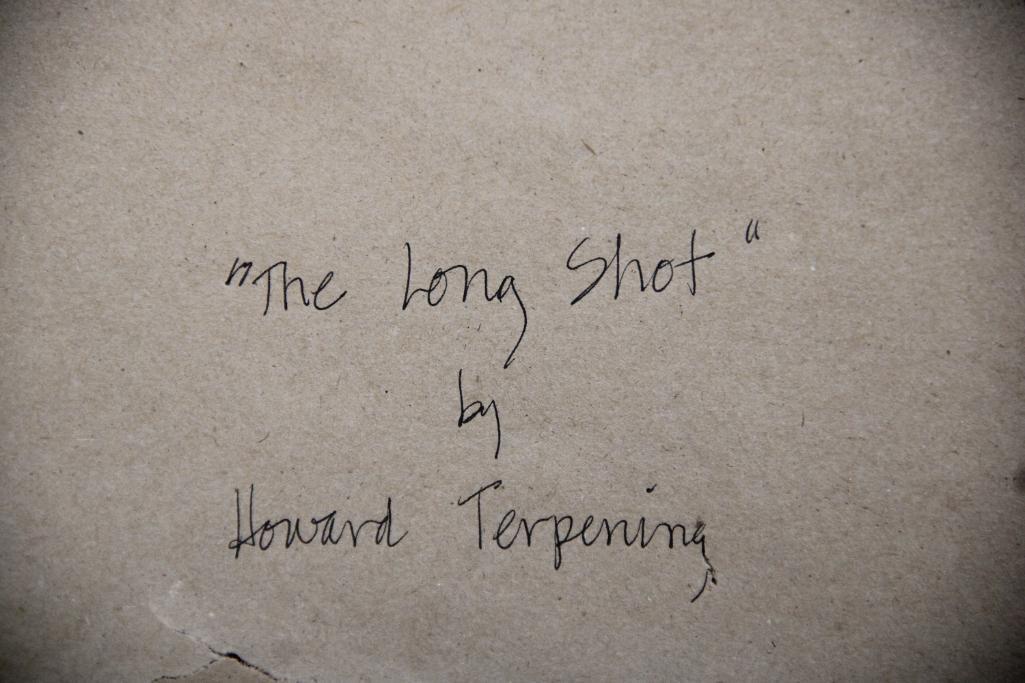 "The Long Shot"
by
Howard Terpening